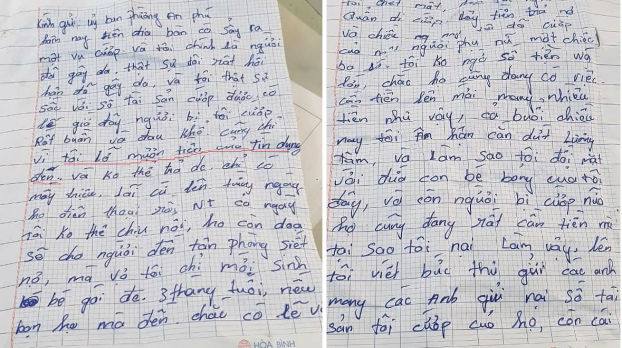 Kính gửi uỷ ban phường An phú
hôm nay trên địa bàn có sảy ra
một vụ cướp và tôi chính là người
đã gây ra, thật sử tôi rất hối
hận đã gây ra, và tôi thật sử
sốc với số tài sản cướp được, có
lẽ giờ đây người bị tôi cướp
Rất buồn và đau khổ cũng chỉ
vì tôi lỡ mượn tiền của tin dụng
đen. và ko thể trả dc chỉ có
mấy triệu. lãi cứ lên từng ngày
họ điện thoại rồi, NT cả ngày
tôi ko thể chịu nổi, họ còn đoạ
sẽ cho người đến tận phòng siết
nợ, mà vợ tôi chỉ mới sinh
bé gái dc. 3 tháng tuổi, nếu
bọn họ mà đến. chắc có lẽ v
tôi chết mất,
Quẩn đi cướp lấy tiền trả nợ
và chiều nay tôi đã cướp
của người phụ nữ một chiếc
tôi ko ngờ số tiền wa
lớn, chắc họ cũng đang có việc
cần tiền lên mới mang nhiều
tiền như vậy, cả buổi chiều
nay tôi ân hận cắn dứt lương
tâm, và làm sao tôi đối mặt
với đứa con bé bỏng của tôi
đây, và còn người bị cướp nữa
họ cũng đang rất cần tiền mà
tại sao tôi nại làm vậy, lên
tôi viết bức thư gửi các anh
mong các Anh gửi nại số tài
sản tôi cướp của họ, còn cái
HÒA BÌNH